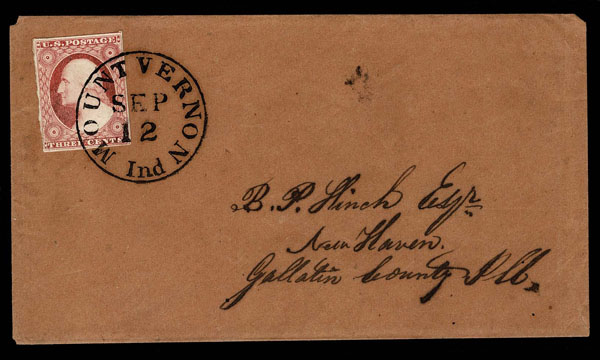 U.S. POSTAGE
THREE CENTS
MOUNT VERNON
SEP
12
Ind
B. P. Hinch Esqr
New Haven.
Gallatin County Ill.